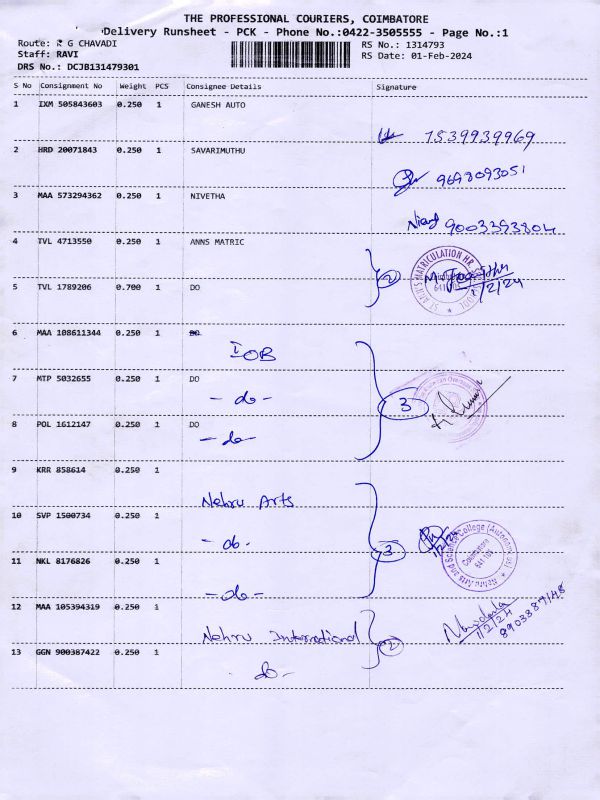 THE PROFESSIONAL COURIERS, COIMBATORE
Delivery Runsheet - PCK - Phone No.:0422-3505555 - Page No.:1
Route: G CHAVADI
Staff: RAVI
DRS No.: DCJB131479301
RS No.: 1314793
RS Date: 01-Feb-2024
S No Consignment No Weight PCS Consignee Details Signature
1 IXM 505843603 0.250 1 GANESH AUTO
7539939969
2 HRD 20071843 0.250 1 SAVARIMUTHU
9698093051
3 MAA 573294362 0.250 1 NIVETHA
9003393804
4 TVL 4713550 0.250 1 ANNS MATRIC
2
1/2/24
5 TVL 1789206 0.700 1 DO
6 MAA 108611344 0.250 1 DO
IOB
7 MTP 5032655 0.250 1 DO
- do -
3
8 POL 1612147 0.250 1 DO
- do -
9 KRR 858614 0.250 1
Nehru Arts
10 SVP 1500734 0.250 1
- do -
3
Nehru Arts and Science College (Autonomous)
Coimbatore
641 105
11 NKL 8176826 0.250 1
- do -
12 MAA 105394319 0.250 1
Nehru International
2
1/2/24
8903887148
13 GGN 900387422 0.250 1
do -